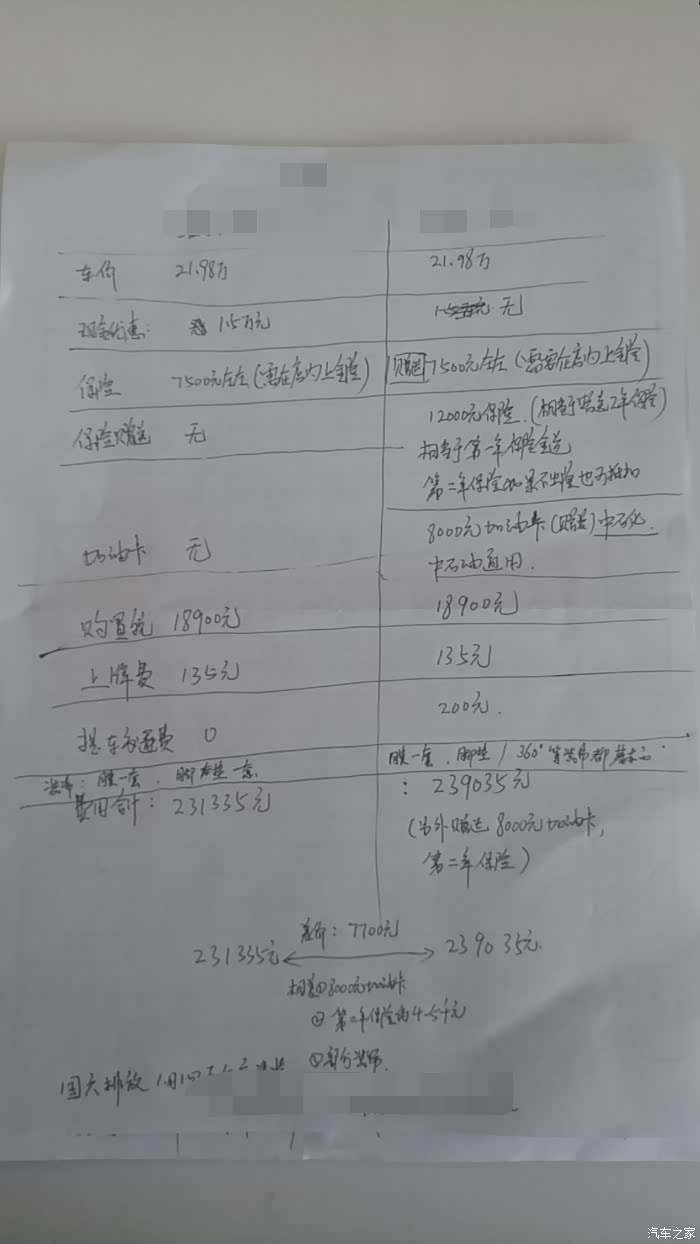 车价 21.98万 21.98万
现金优惠: 1.5万元 无
保险 7500元左右(需在店内上全险) 赠送 7500元左右(需要在店内上全险)
保险赠送 无 12000元保险.(相当于赠送2年保险)
相当于第一年保险全送
第二年保险如果不出险也可抵扣
加油卡 无 8000元加油卡(赠送)中石化.
中石油通用.
购置税 18900元 18900元
上牌费 135元 135元
提车交通费 0 200元.
装饰: 膜一套, 脚垫一套. 膜一套, 脚垫 / 360°等装饰都基本
费用合计: 231335元 : 239035元
(另外赠送8000元加油卡,
第二年保险)
差价: 7700元
231335元 239035元.
相差①8000元加油卡
② 第二年保险约4-5千元
③部分装饰.
国六排放
汽车之家